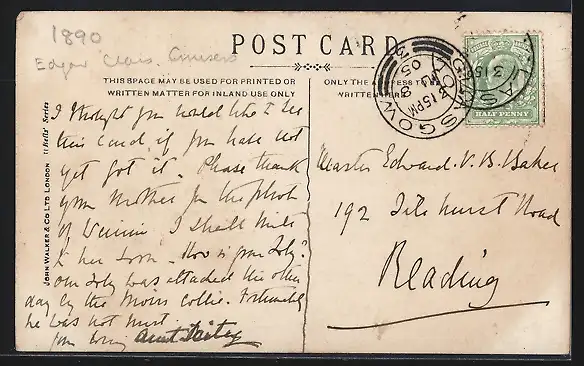 1890
Edgar Class Cruisers
POST CARD.
THIS SPACE MAY BE USED FOR PRINTED OR
WRITTEN MATTER FOR INLAND USE ONLY
ONLY THE ADDRESS TO BE
WRITTEN HERE.
JOHN WALKER & CO LTD LONDON "Bells" Series
GLASGOW
3 15 PM
AU 8
05
HALF PENNY
I thought you would like to see
this card if you have not
yet got it. Please thank
your Mother for the photo
of I shall write
to her soon. How is your Toby?
our Toby was attacked the other
day by the Collie. Fortunately
he was not hurt.
Your loving Aunt
Master Edward. V. B. Baker
192 Tilehurst Road
Reading